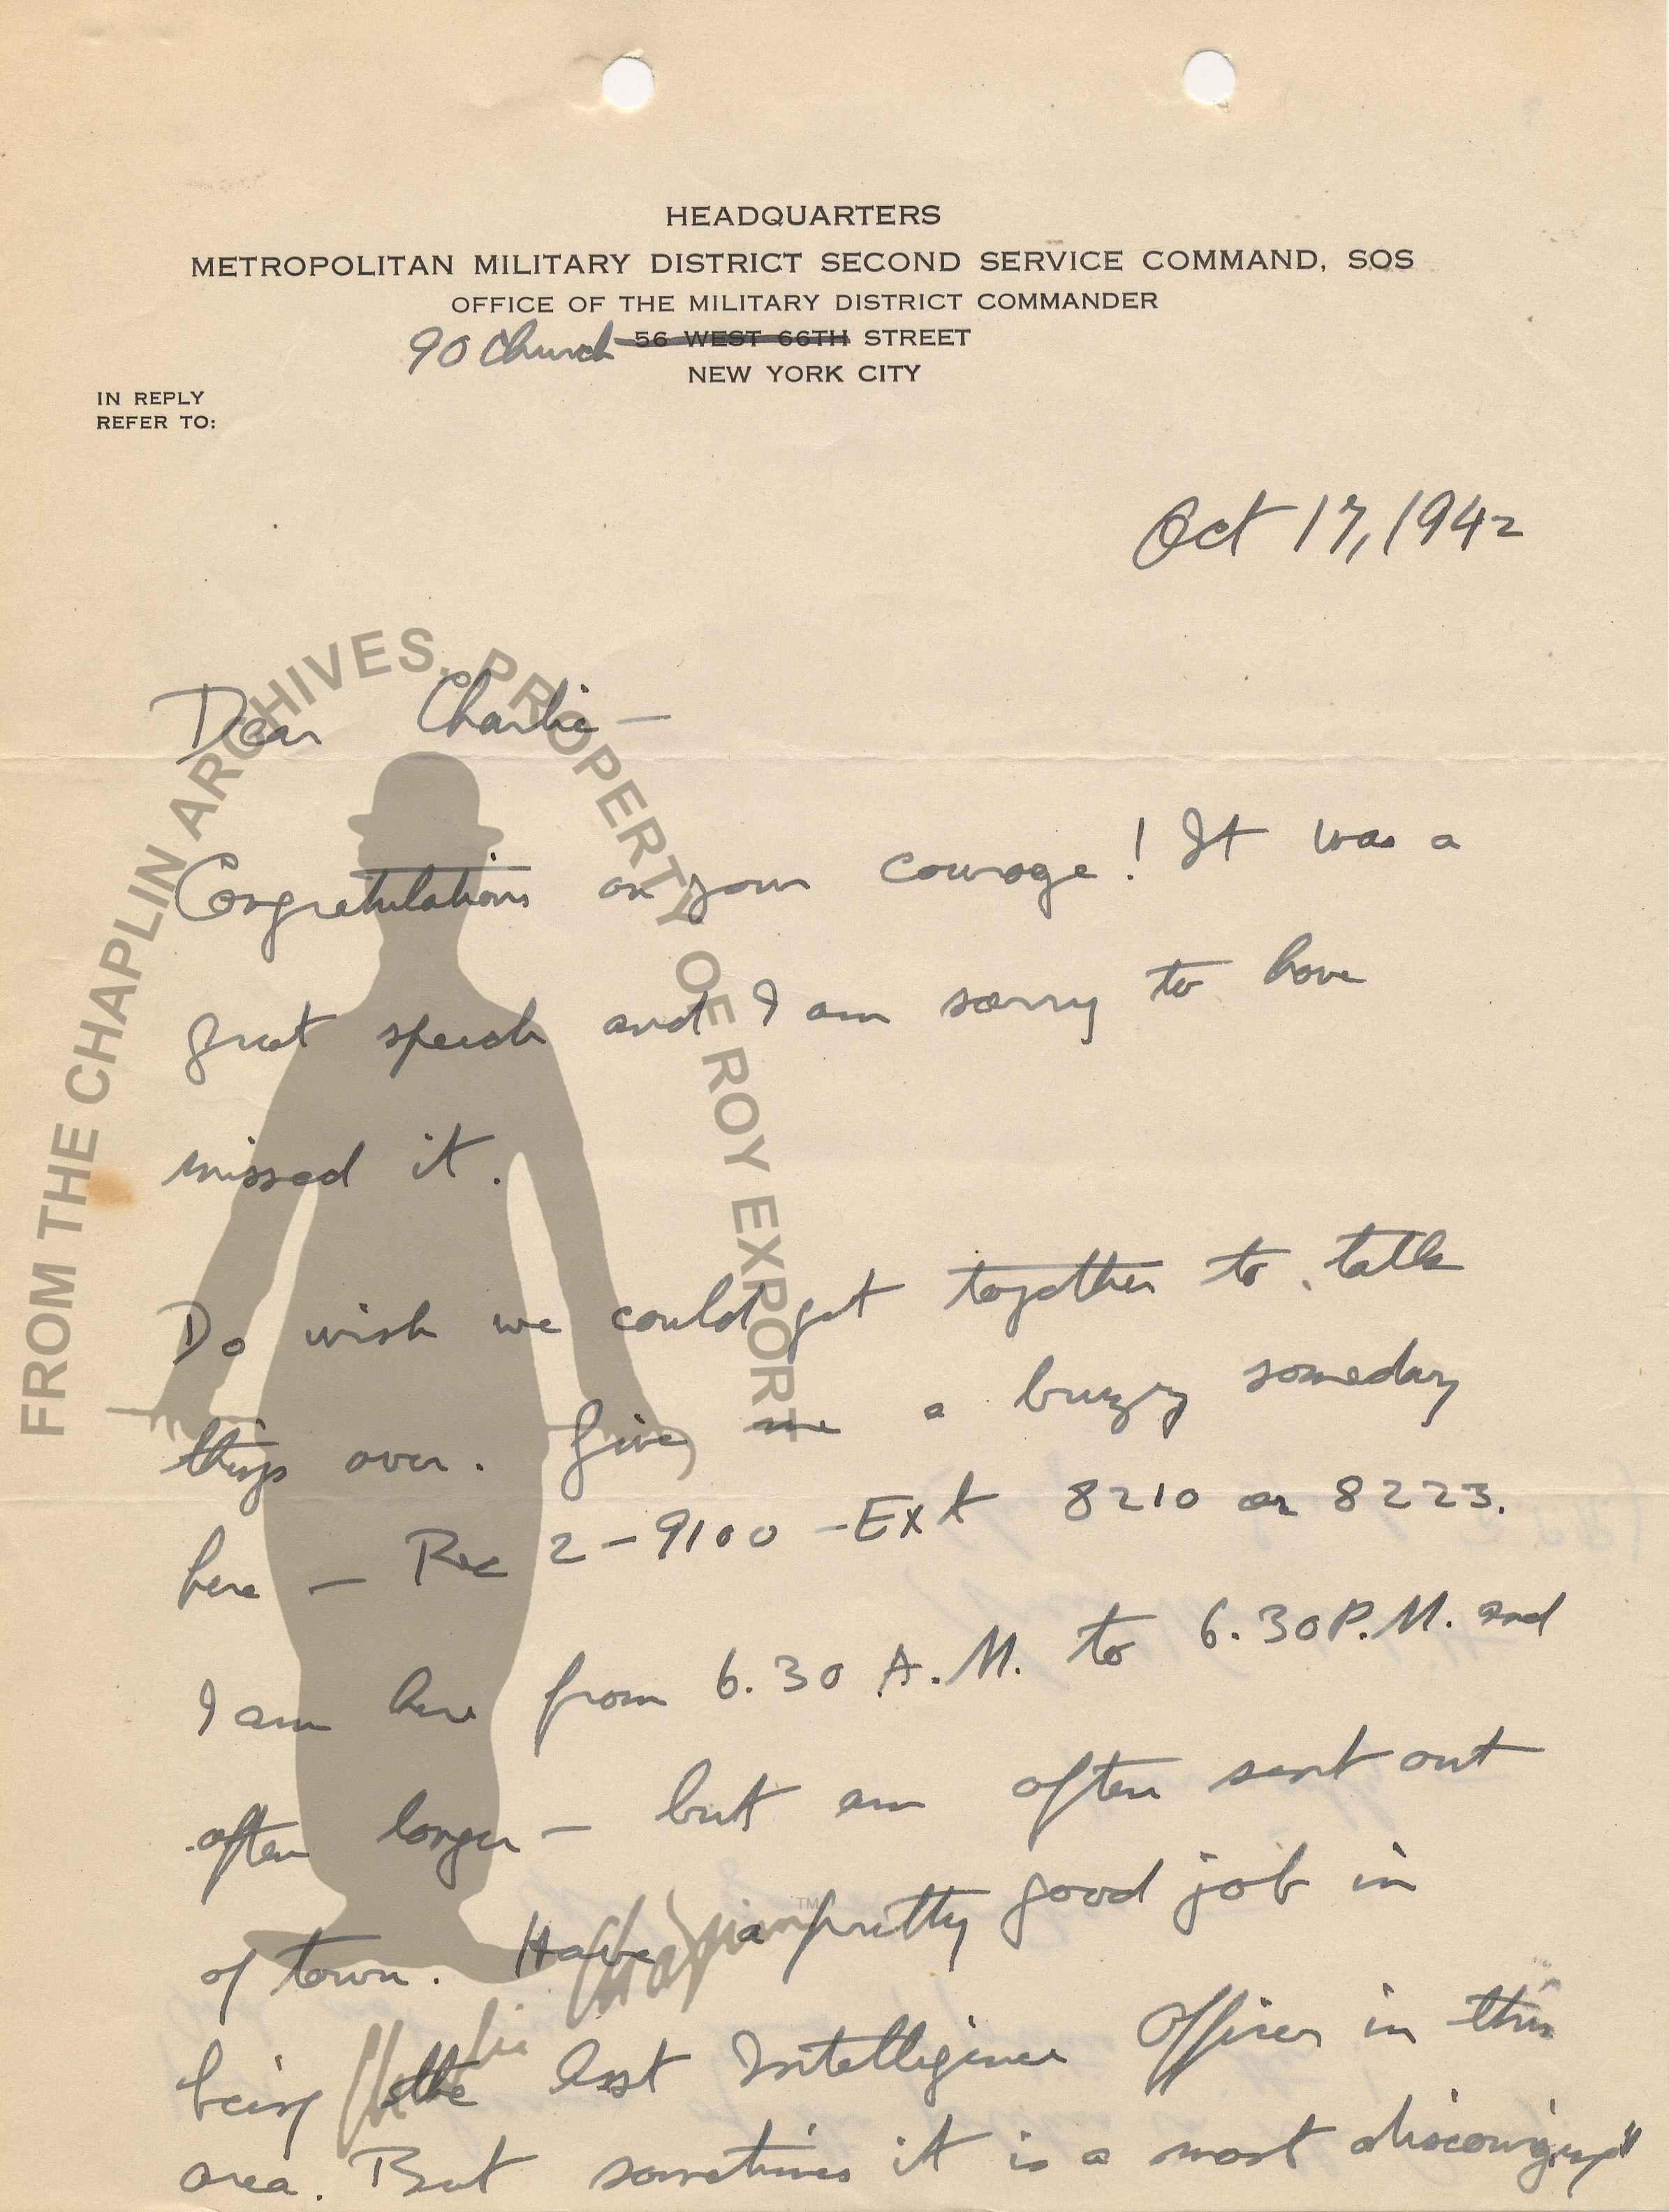 HEADQUARTERS
METROPOLITAN MILITARY DISTRICT SECOND SERVICE COMMAND, SOS
OFFICE OF THE MILITARY DISTRICT COMMANDER
90 Church 56 WEST 66TH STREET
NEW YORK CITY
IN REPLY
REFER TO:
Oct 17, 1942
FROM THE CHAPLIN ARCHIVES. PROPERTY OF ROY EXPORT
Dear Charlie —
Congratulations on your courage! It was a
great speech and I am sorry to have
missed it.
Do wish we could get together to talk
things over. Give me a buzz someday
here — Rec 2-9100 - Ext 8210 or 8223.
I am here from 6.30 A.M. to 6.30 P.M. and
often longer — but am often sent out
of town. Have a pretty good job in
being the Intelligence Officer in this
area. But sometimes it is a most
Charlie Chaplin TM